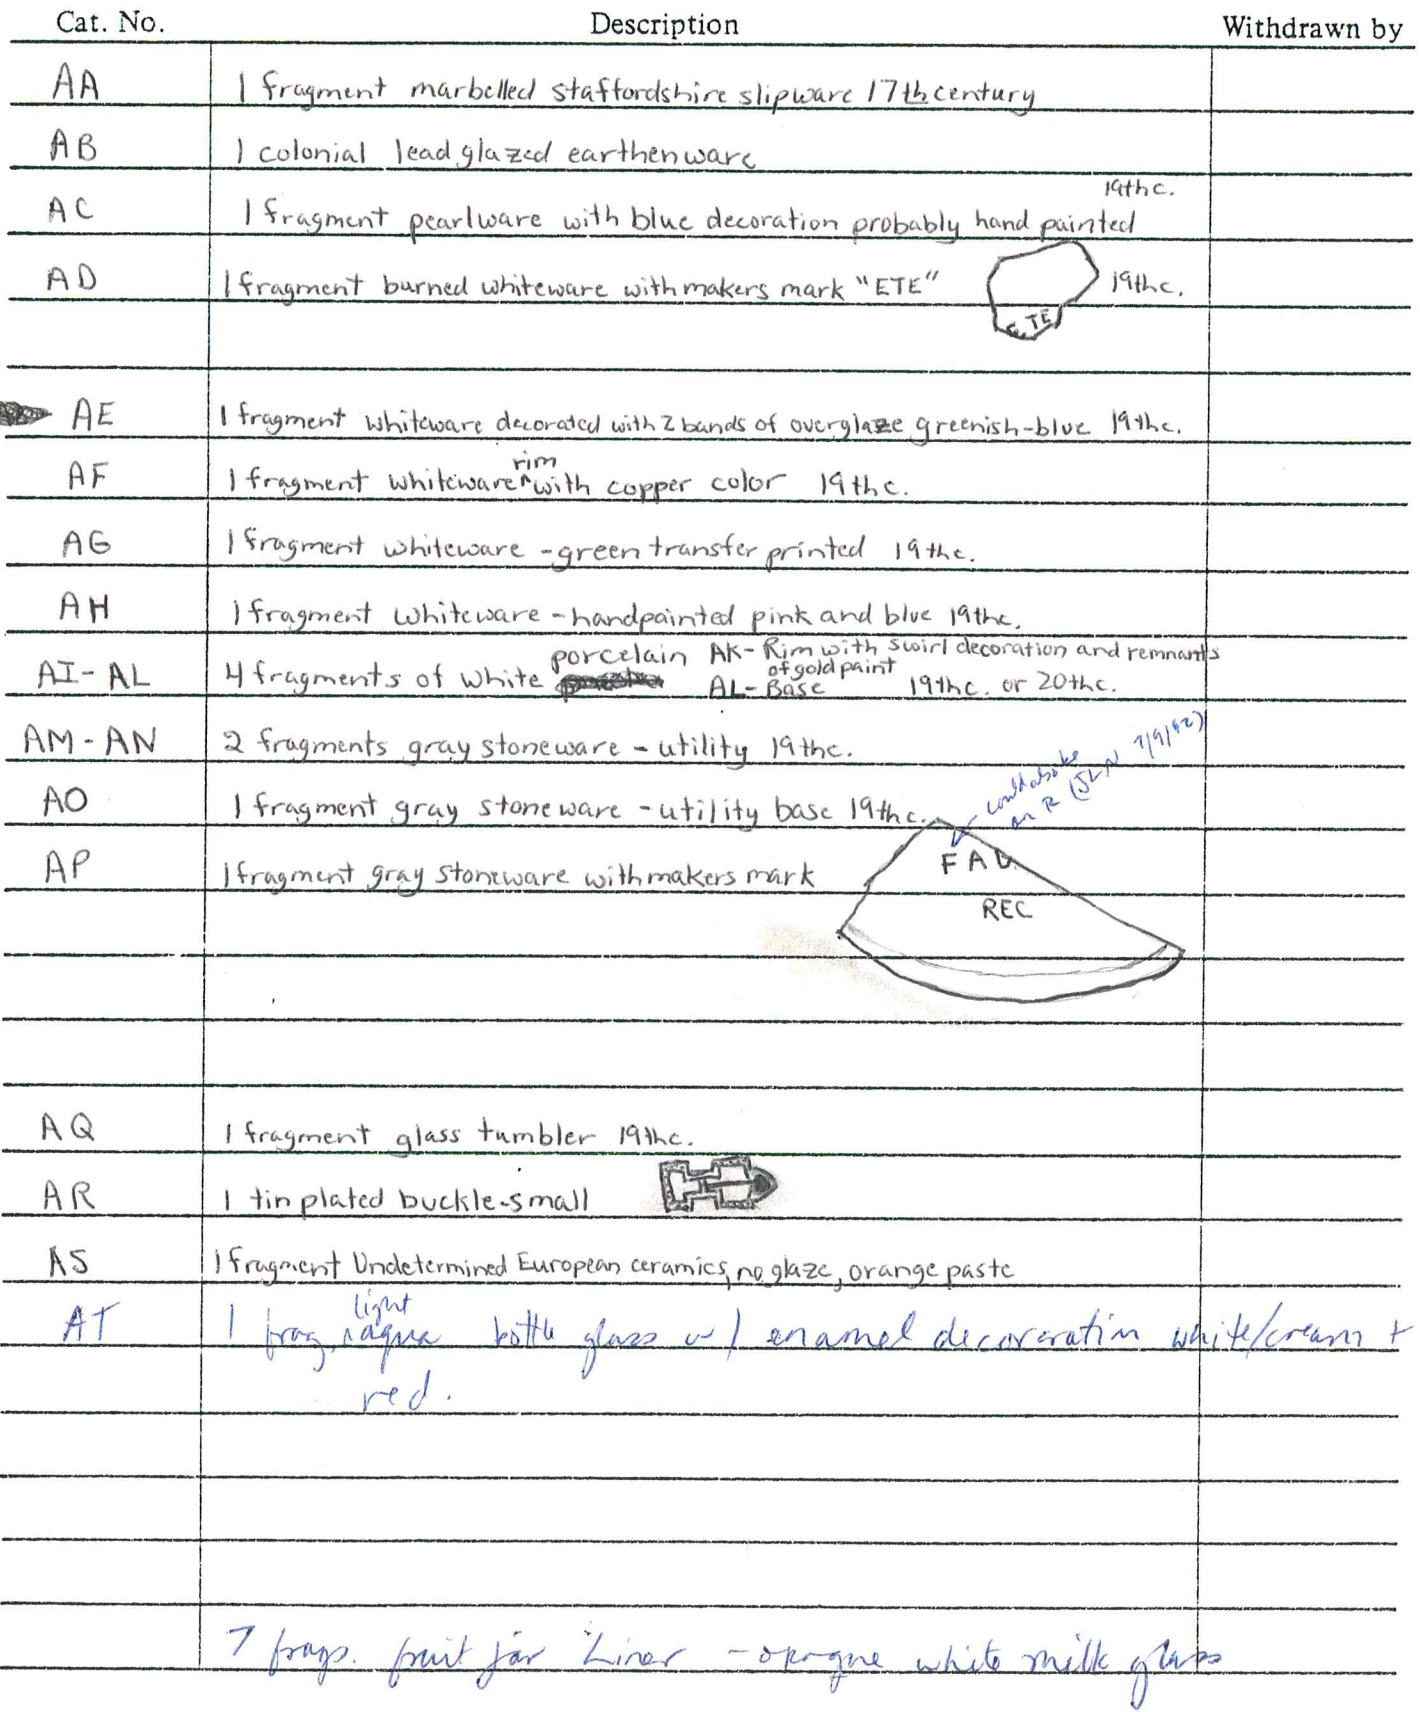 Cat. No. Description Withdrawn by
AA 1 fragment marbelled staffordshire slipware 17th century
AB 1 colonial lead glazed earthenware
19th c.
AC 1 fragment pearlware with blue decoration probably hand painted
AD 1 fragment burned whiteware with makers mark "ETE" 19th c.
ETE
AE 1 fragment whiteware decorated with 2 bands of overglaze greenish-blue 19th c.
rim
AF 1 fragment whiteware ^ with copper color 19th c.
AG 1 fragment whiteware - green transfer printed 19th c.
AH 1 fragment whiteware - handpainted pink and blue 19th c.
porcelain AK- Rim with swirl decoration and remnants
of gold paint
AI - AL 4 fragments of white AL- Base 19th c. or 20th c.
AM - AN 2 fragments gray stoneware - utility 19th c.
could also be
an R (JLN 7/9/92)
AO 1 fragment gray stoneware - utility base 19th c.
AP 1 fragment gray stoneware with makers mark FAU
REC
AQ 1 fragment glass tumbler 19th c.
AR 1 tin plated buckle - small
AS 1 fragment Undetermined European ceramics, no glaze, orange paste
light
AT 1 frag. aqua bottle glass w/ enamel decoreration white/cream +
red.
7 frags. fruit jar Liner - opaque white milk glass